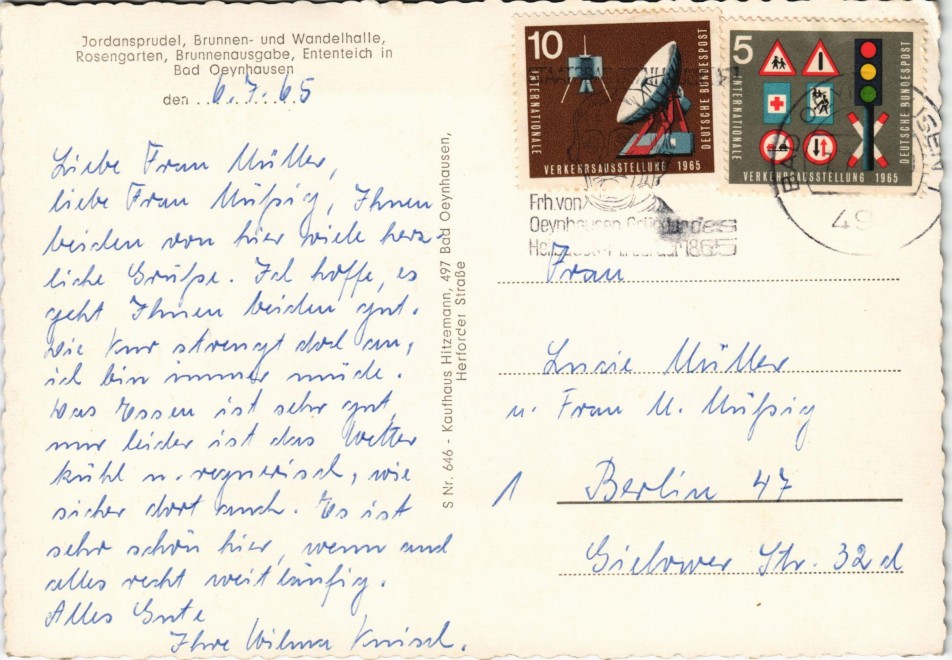 Jordansprudel, Brunnen- und Wandelhalle,
Rosengarten, Brunnenausgabe, Ententeich in
Bad Oeynhausen
den 6.7.65
Liebe Frau Müller,
liebe Frau Müßig, Ihnen
beiden von hier viele herz-
liche Grüße. Ich hoffe, es
geht Ihnen beiden gut.
Die Kur strengt doch an,
ich bin immer müde.
Das Essen ist sehr gut,
nur leider ist das Wetter
kühl u. regnerisch, wie
sicher dort auch. Es ist
sehr schön hier, wenn auch
alles recht weitläufig.
Alles Gute
Ihre Wilma
S Nr. 646 - Kaufhaus Hitzemann, 497 Bad Oeynhausen,
Herforder Straße
10
INTERNATIONALE
VERKEHRSAUSSTELLUNG 1965
DEUTSCHE BUNDESPOST
5
INTERNATIONALE
VERKEHRSAUSSTELLUNG 1965
DEUTSCHE BUNDESPOST
Frh. von
Oeynhausen
1865
BAD
49
Frau
Lucie Müller
u. Frau M. Müßig
1 Berlin 47
Gielower Str. 32d